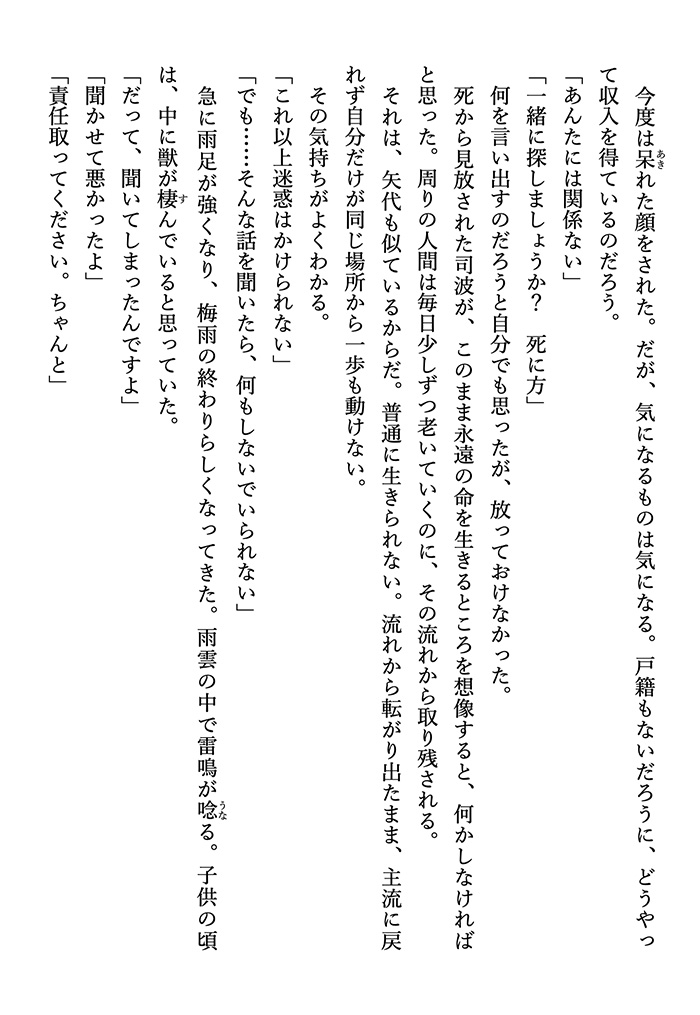 今度は呆れた顔をされた。だが、気になるものは気になる。戸籍もないだろうに、どうやっ
て収入を得ているのだろう。
「あんたには関係ない」
「一緒に探しましょうか？　死に方」
　何を言い出すのだろうと自分でも思ったが、放っておけなかった。
　死から見放された司波が、このまま永遠の命を生きるところを想像すると、何かしなければ
と思った。周りの人間は毎日少しずつ老いていくのに、その流れから取り残される。
　それは、矢代も似ているからだ。普通に生きられない。流れから転がり出たまま、主流に戻
れず自分だけが同じ場所から一歩も動けない。
　その気持ちがよくわかる。
「これ以上迷惑はかけられない」
「でも……そんな話を聞いたら、何もしないでいられない」
　急に雨足が強くなり、梅雨の終わりらしくなってきた。雨雲の中で雷鳴が唸る。子供の頃
は、中に獣が棲んでいると思っていた。
「だって、聞いてしまったんですよ」
「聞かせて悪かったよ」
「責任取ってください。ちゃんと」